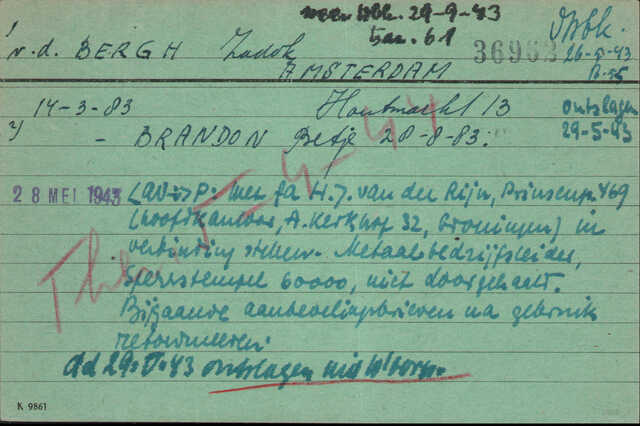 weer Wbk. 29-9-43
bar. 61
v.d. BERGH Zadok 36963 Wbk.
AMSTERDAM 26-5-43
B. 55
14-3-83 Houtmarkt 13 ontslagen
- BRANDON Betje 28-8-83. 29-5-43
Ther. 5-4-44
28 MEI 1943 LAV->P. met fa H.J. van der Rijn, Prinsengr. 469
(hoofdkantoor, A. Kerkhof 32, Groningen) in
verbinding stellen. Metaalbedrijfsleider,
sperrstempel 60000, niet doorgehaald.
Bijgaande aanbevelingsbrieven na gebruik
retourneeren.
dd 29-V-43 ontslagen uit W'bork.
K 9861